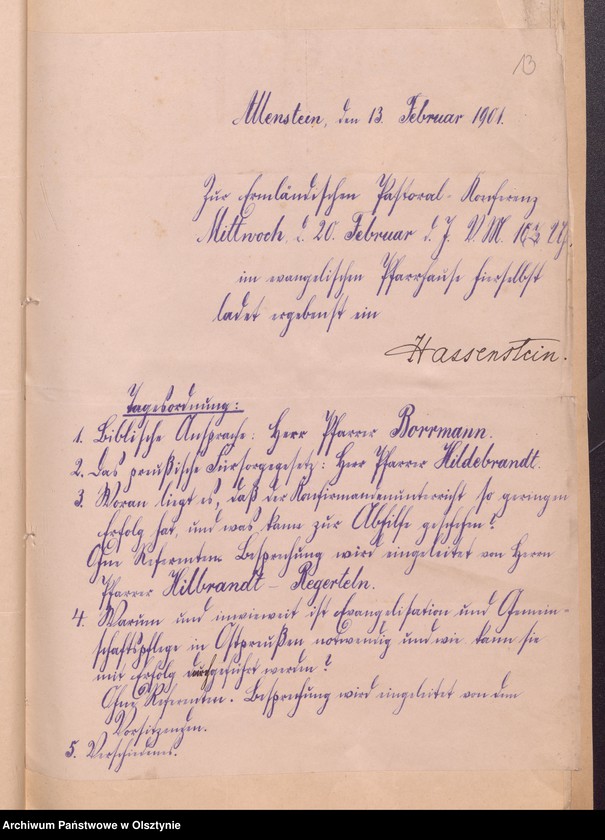 13
Allenstein, den 13. Februar 1901.
Zur Ermländischen Pastoral-Konferenz
Mittwoch, d. 20. Februar d. J. V. M. 10 Uhr,
im evangelischen Pfarrhause hierselbst
ladet ergebenst ein
Hassenstein.
Tagesordnung:
1. Biblische Ansprache: Herr Pfarrer Borrmann.
2. Das preußische Fürsorgegesetz: Herr Pfarrer Hildebrandt.
3. Woran liegt es, daß der Konfirmandenunterricht so geringen
Erfolg hat, und was kann zur Abhilfe geschehen?
Ohne Referenten. Besprechung wird eingeleitet von Herrn
Pfarrer Hilbrandt - Regerteln.
4. Warum und inwieweit ist Evangelisation und Gemein-
schaftspflege in Ostpreußen notwendig und wie kann sie
mit Erfolg geführt werden?
Ohne Referenten. Besprechung wird eingeleitet von dem
Vorsitzenden.
5. Verschiedenes.
Archiwum Państwowe w Olsztynie